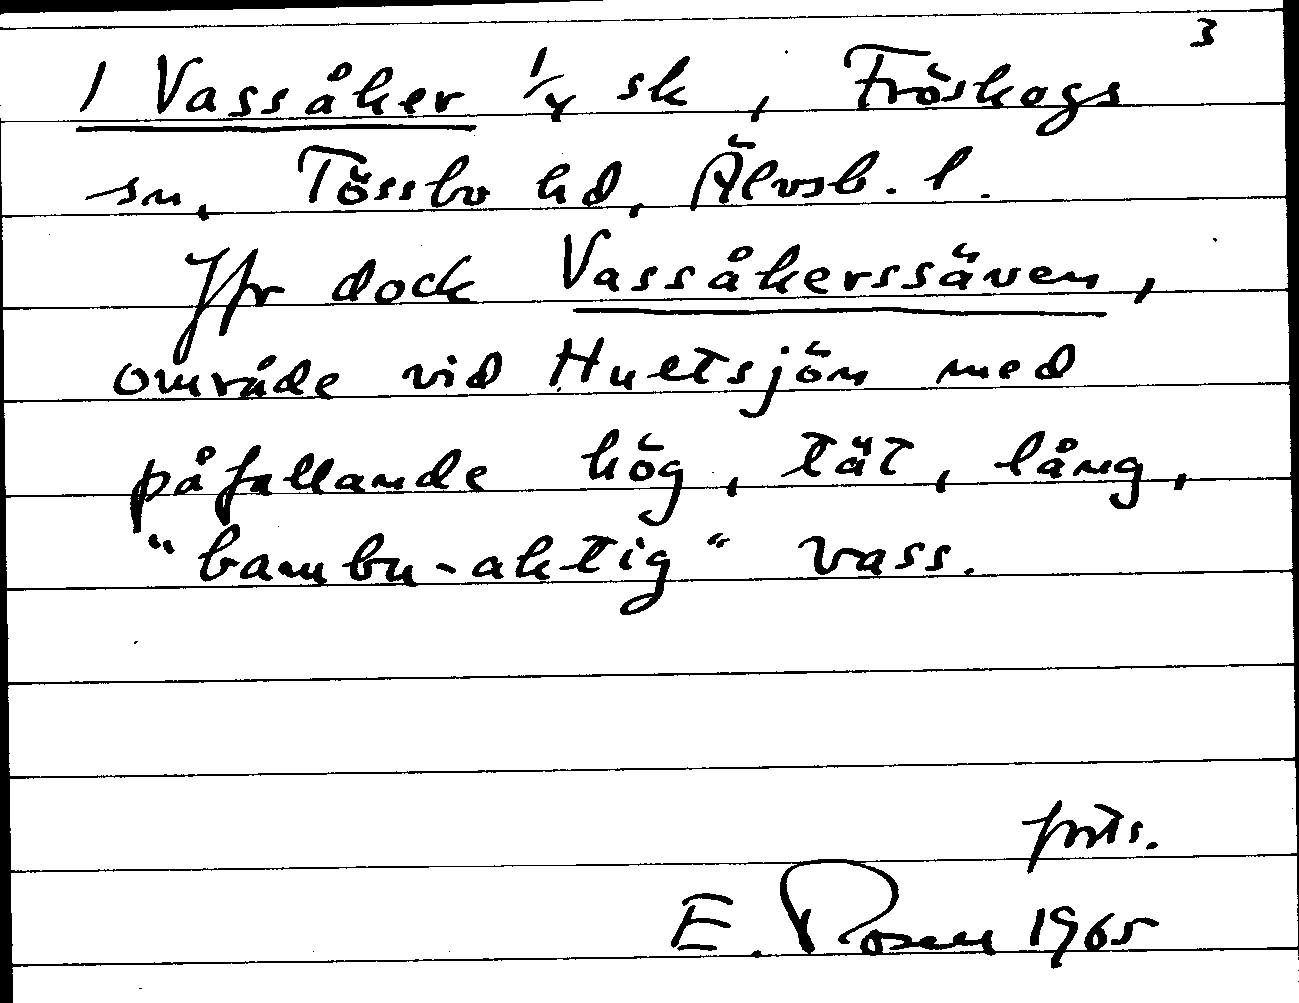 3
1 Vassåker 1/4 sk, Fröskogs
sn, Tössbo hd, Älvsb. l.
Jfr dock Vassåkerssäven,
område vid Hultsjön med
påfallande hög, tät, lång,
"bambu-aktig" vass.
forts.
E. Rosen 1965